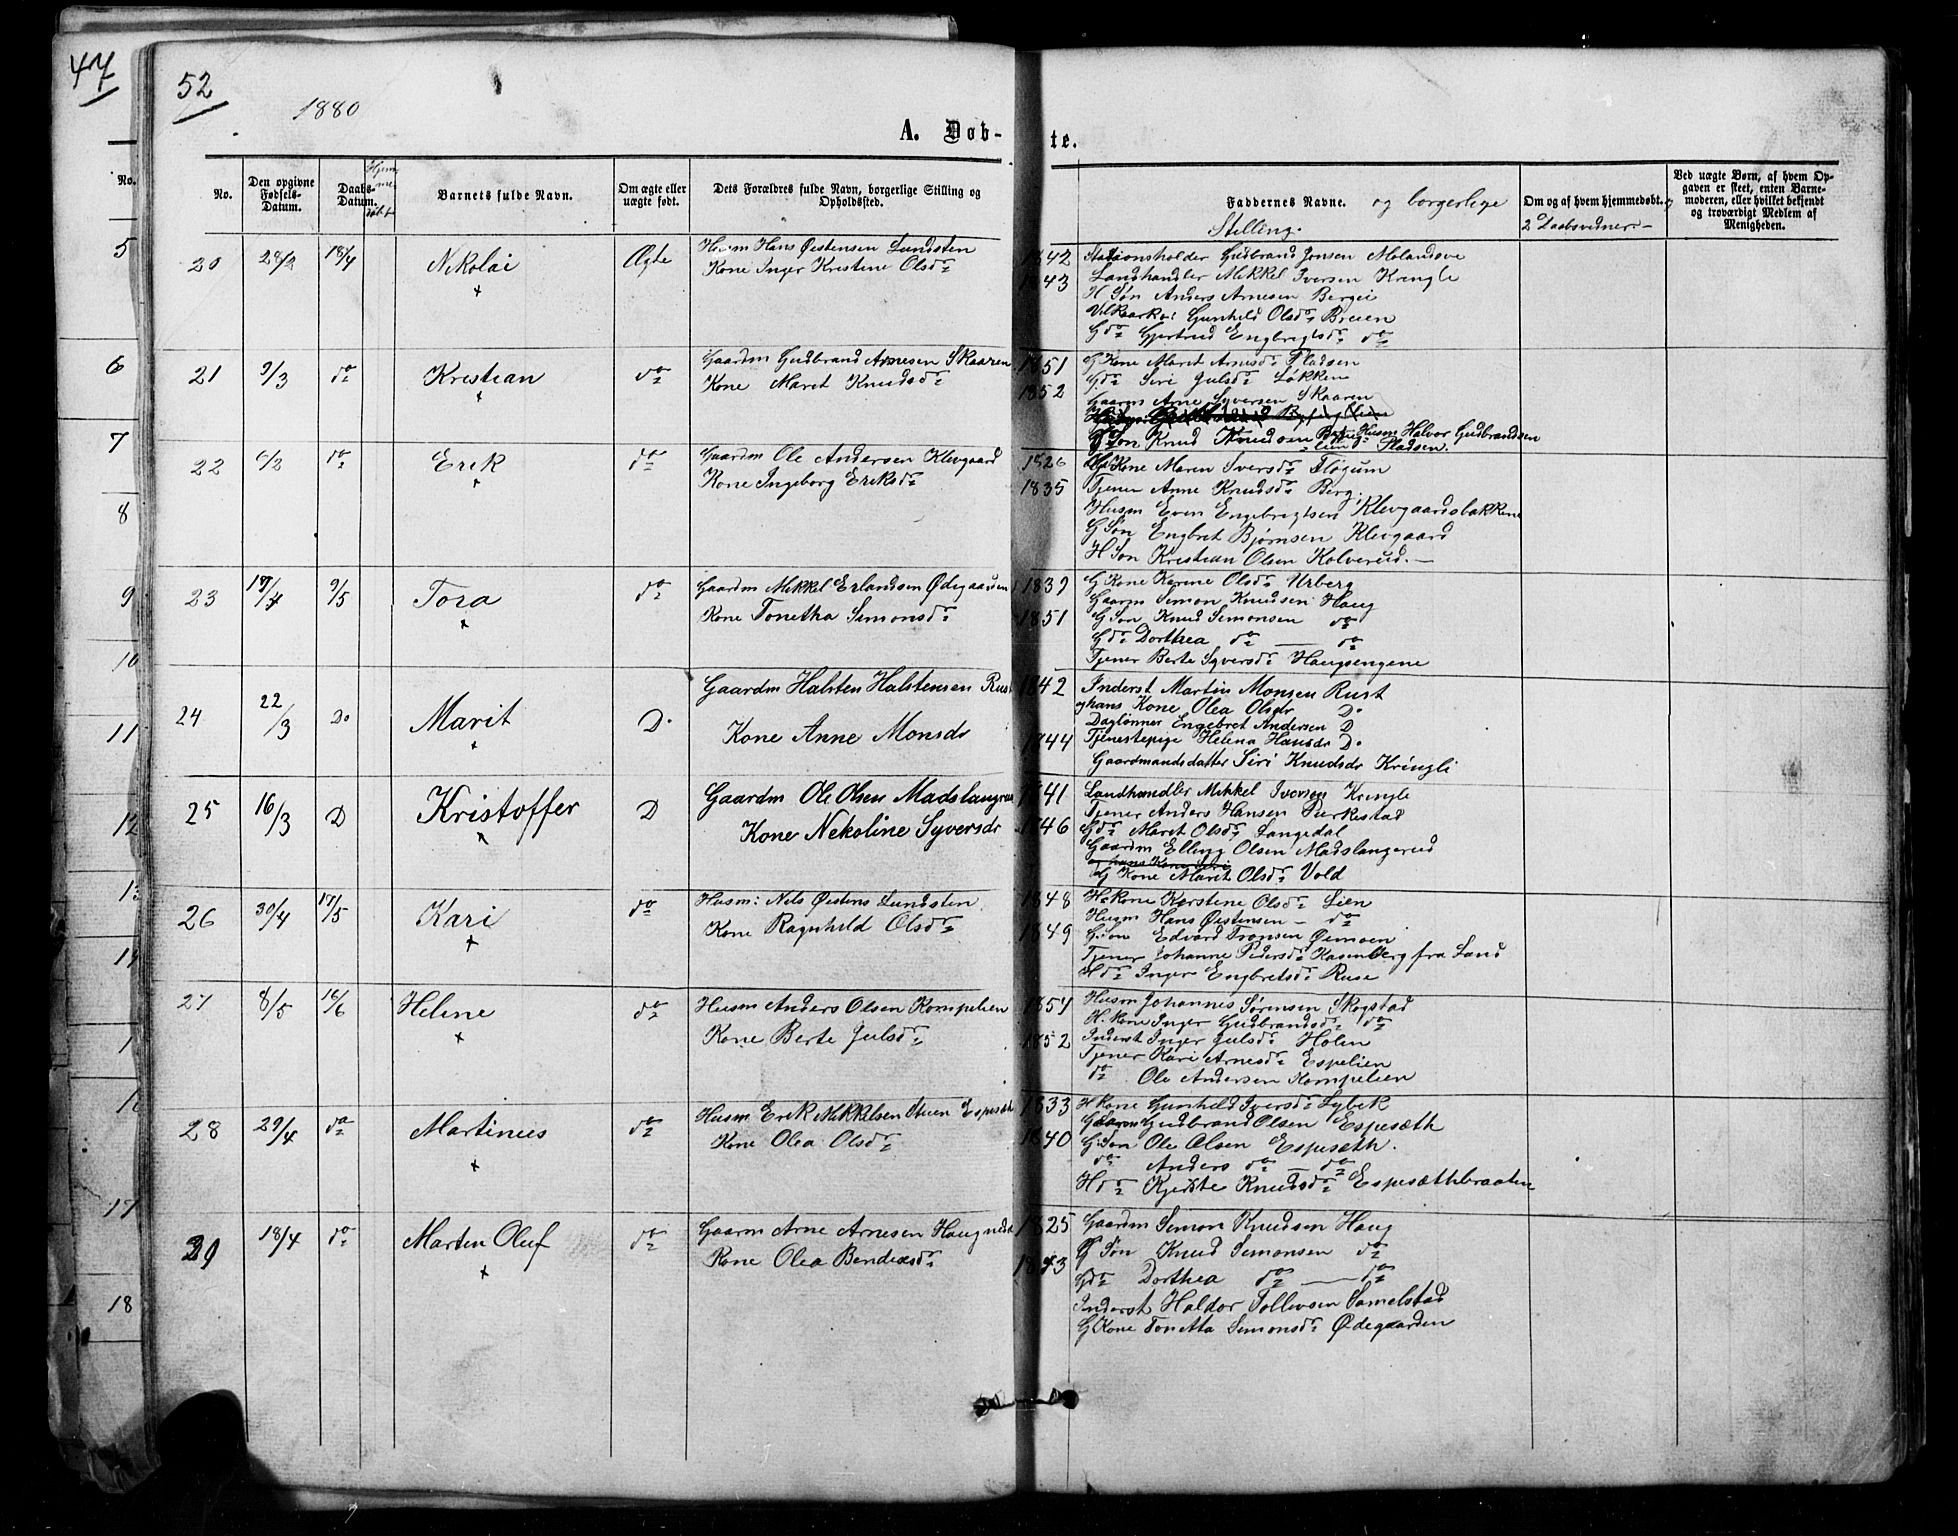 47
52
1880
A. Døb-
te.
No.
No.
Den opgivne Fødsels-Datum.
Daabs-Datum.
Hjemmedøbt
Barnets fulde Navn.
Om ægte eller uægte født.
Dets Forældres fulde Navn, borgerlige Stilling og Opholdssted.
Faddernes Navne. og borgerlige
Stilling.
Om og af hvem hjemmedøbt.
2 Daabsvidner
Ved uægte Børn, af hvem Opgaven er skeet, enten Barnemoderen, eller hvilket bekjendt og troværdigt Medlem af Menigheden.
5
6
7
8
9
10
11
12
13
14
1
1
17
18
20 28/2 18/4 Nekolai Ægte
Husm Hans Øistensen Lundsten
Kone Inger Kristine Olsdr
1842
1843
Stationsholder Gudbrand Jonsen Molandsve
Landhandler Mikkel Iversen Kringle
H Søn Anders Arnesen Bergei
Gunhild Olsdr Breien
Gdr Gjertrud Engbregtsdr do
21 9/3 do Kristian do
Gaardm Gudbrand Arnesen Skaaren
Kone Marit Knudsdr
1851
1852
G Kone Marit Arnesdr Pladsen
Gdr Siri Julsdr Løkken
Gaarm Arne Syversen Skaaren
G Søn Knud Knudsen Husm Halvor Gudbrandsen
Pladsen.
22 6/2 do Erik do
Gaardm Ole Andersen Klevgaard
Kone Ingeborg Eriksdr
1826
1835
Kone Maren Iversdr Fløgum
Tjener Anne Knudsdr Berg
Husm Even Engebregtsen Klevgaardsbakkene
G Søn Engbret Bjørnsen Klevgaard
H Søn Kristian Olsen Kolverud.
23 17/4 9/5 Tora do
Gaardm Mikkel Erlandsen Ødegaarden
Kone Tonetha Simonsdr
1839
1851
G Kone Karine Olsdr Urberg
Gaarm Simon Knudsen Haug
G Søn Knud Simonsen do
Gdr Dorthea do do
Tjener Berte Syversdr Haugsengene
24 22/3 Do Marit D.
Gaardm Halsten Halstensen Rust
Kone Anne Monsdr
1842
1844
Inderst Martin Monsen Rust
og hans Kone Olea Olsdr D.
Daglønner Engebret Andersen D
Tjenestepige Helena Hansdr D.
Gaardmandsdatter Siri Knudsdr Kringli
25 16/3 D Kristoffer D
Gaardm Ole Olsen Madslangrud
Kone Nekoline Syversdr
1841
1846
Landhandler Mikkel Iversen Kringle
Tjener Anders Hansen Purkestad
Gdr Marit Olsdr Langedal
Gaardm Elling Olsen Madslangerud
og hans Kone Siri
G Kone Marit Olsdr Vold
26 30/4 17/5 Kari do
Husm: Nils Østens Lundsten
Kone Ragnhild Olsdr
1848
1849
H. Kone Kerstene Olsdr Lien
Husm Hans Øistensen do
G. Søn Edvard Tronsen Øimoen
Tjener Johanne Pedersdr Hasenberg fra Land
Hdr Inger Engbretsdr Ruse
27 8/5 16/6 Helene do
Husm Anders Olsen Kompelien
Kone Berte Julsdr
1857
1852
Husm Johannes Sørensen Skogstad
H. Kone Inger Gudbrandsdr do
Inderst Inger Julsdr Holen
Tjener Kari Arnesdr Espelien
do Ole Andersen Kompelien
28 29/4 do Martinus do
Husm Erik Mikkelsen Stuen Espesæth
Kone Olea Olsdr
1833
1840
H Kone Gunhild Iversdr Lybek
Gaarm Gudbrand Olsen Espesæth
G. Søn Ole Olsen Espesæth.
do Anders do do
Hdr Kjerste Knudsdr Espesæthbraaten
29 18/4 do Marten Oluf do
Gaarm Arne Arnesen Haug neda
Kone Olea Bendixsdr
1825
1843
Gaardm Simon Knudsen Haug
G Søn Knud Simonsen do
Gdr Dorthea do do
Inderst Haldor Tollevsen Samelstad
G Kone Tonetta Simonsdr Ødegaarden